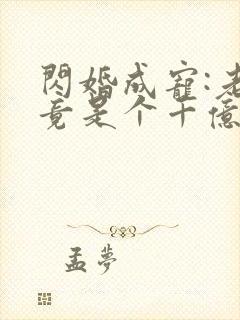 閃婚成寵:老
竟是个千億
孟夢